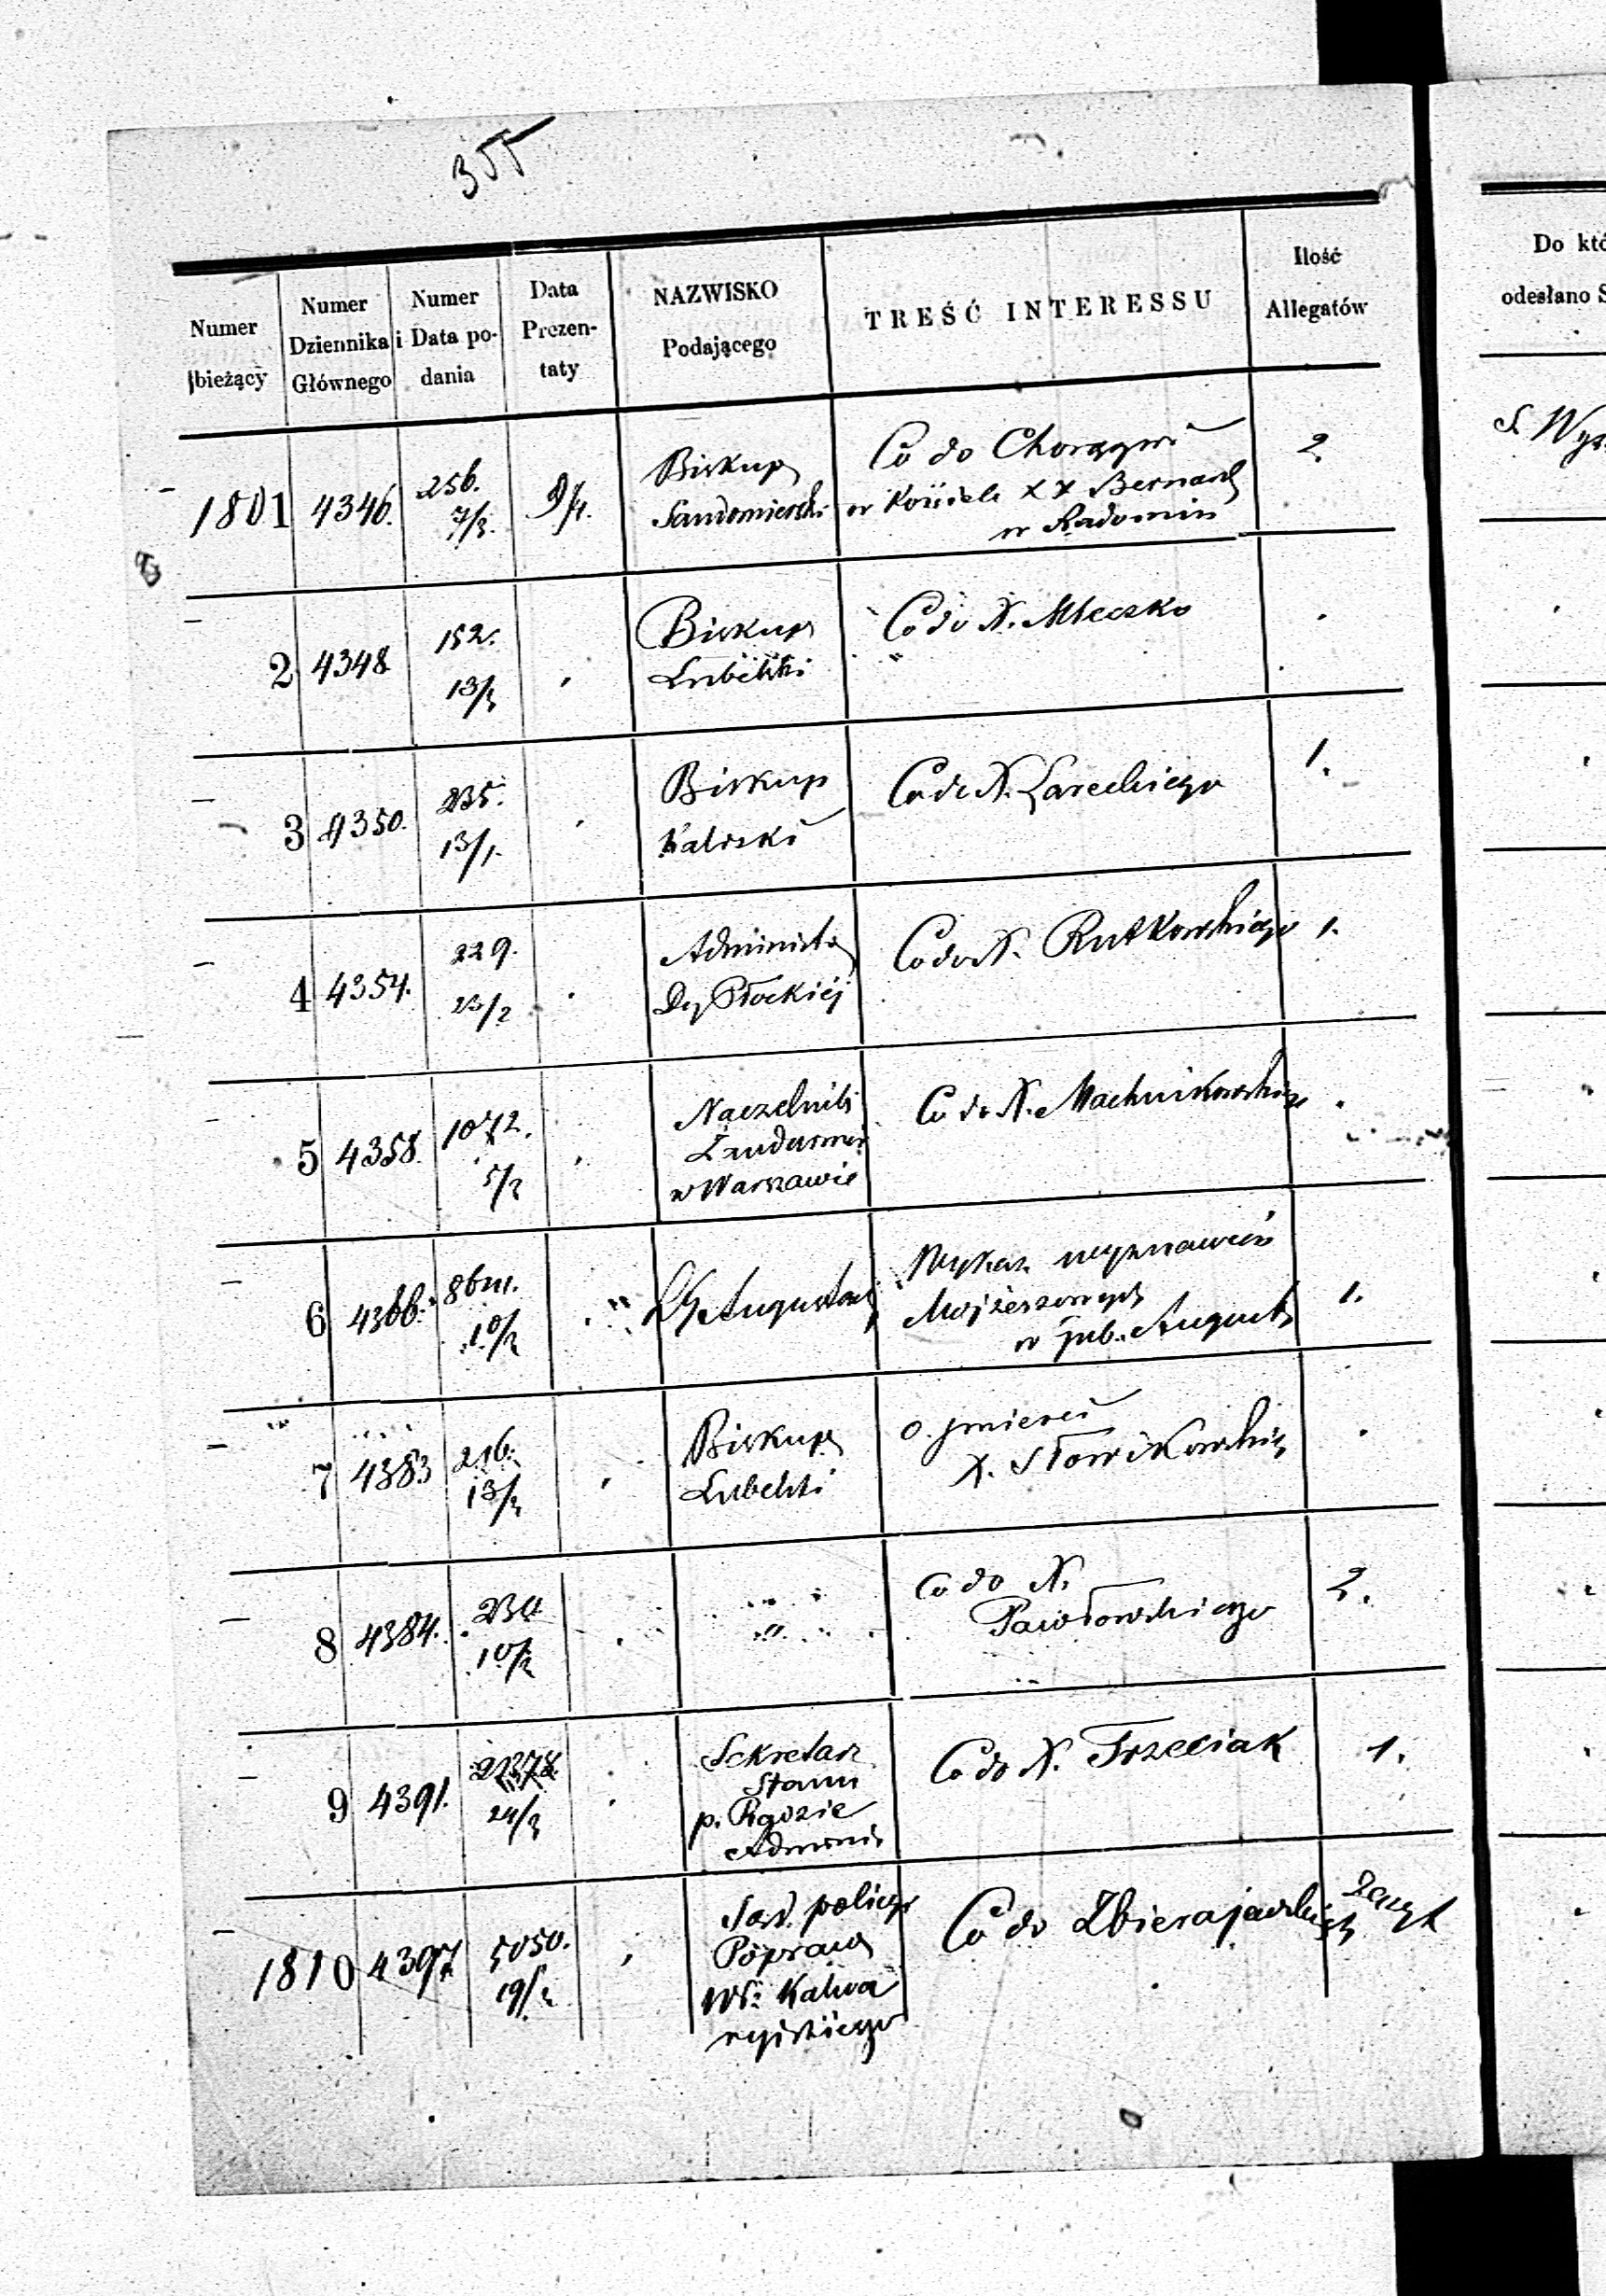 355
Numer
bieżący
Numer
Dziennika
Głównego
Numer
i Data po-
dania
Data
Prezen-
taty
NAZWISKO
Podającego
TREŚĆ INTERESSU
Ilość
Allegatów
Do któ
odesłano S
1801 4346. 256. 7/3. 9/4.
Biskup
Sandomierski
Co do Chorągwi
w Kościele XX Bernard
w Radomiu
2.
S. Wyz
2 4348 152. 13/3
Biskup
Lubelski
Co do X. Mleczko
3 4350. 235. 13/1.
Biskup
Kaliski
Co do X. Zareckiego
1.
4 4354. 229. 23/2
Administ
Dy Płockiej
Co do X. Rutkowskiego
1.
5 4358. 1072. 5/3
Naczelnik
Żandarmer
w Warszawie
Co do X. Machnikowskieg
6 4366. 86m. 10/3
Augustows
Wykaz wyznawców
Mojżeszowych
w gub. August
1.
7 4383 216. 13/3
Biskup
Lubelski
o śmierci
X. Słowikowskieg
8 4384. 230 10/3
" "
Co do X.
Pawłowskiego
2.
9 4391. 24/3
Sekretarz
Stanu
p. Rządzie
Adminis
Co do X. Trzeciak
1.
1810 4397 5050. 19/3
Sąd policyi
Popraw
Wł. Kalwa
ryjskiego
Co do
Zeszyt